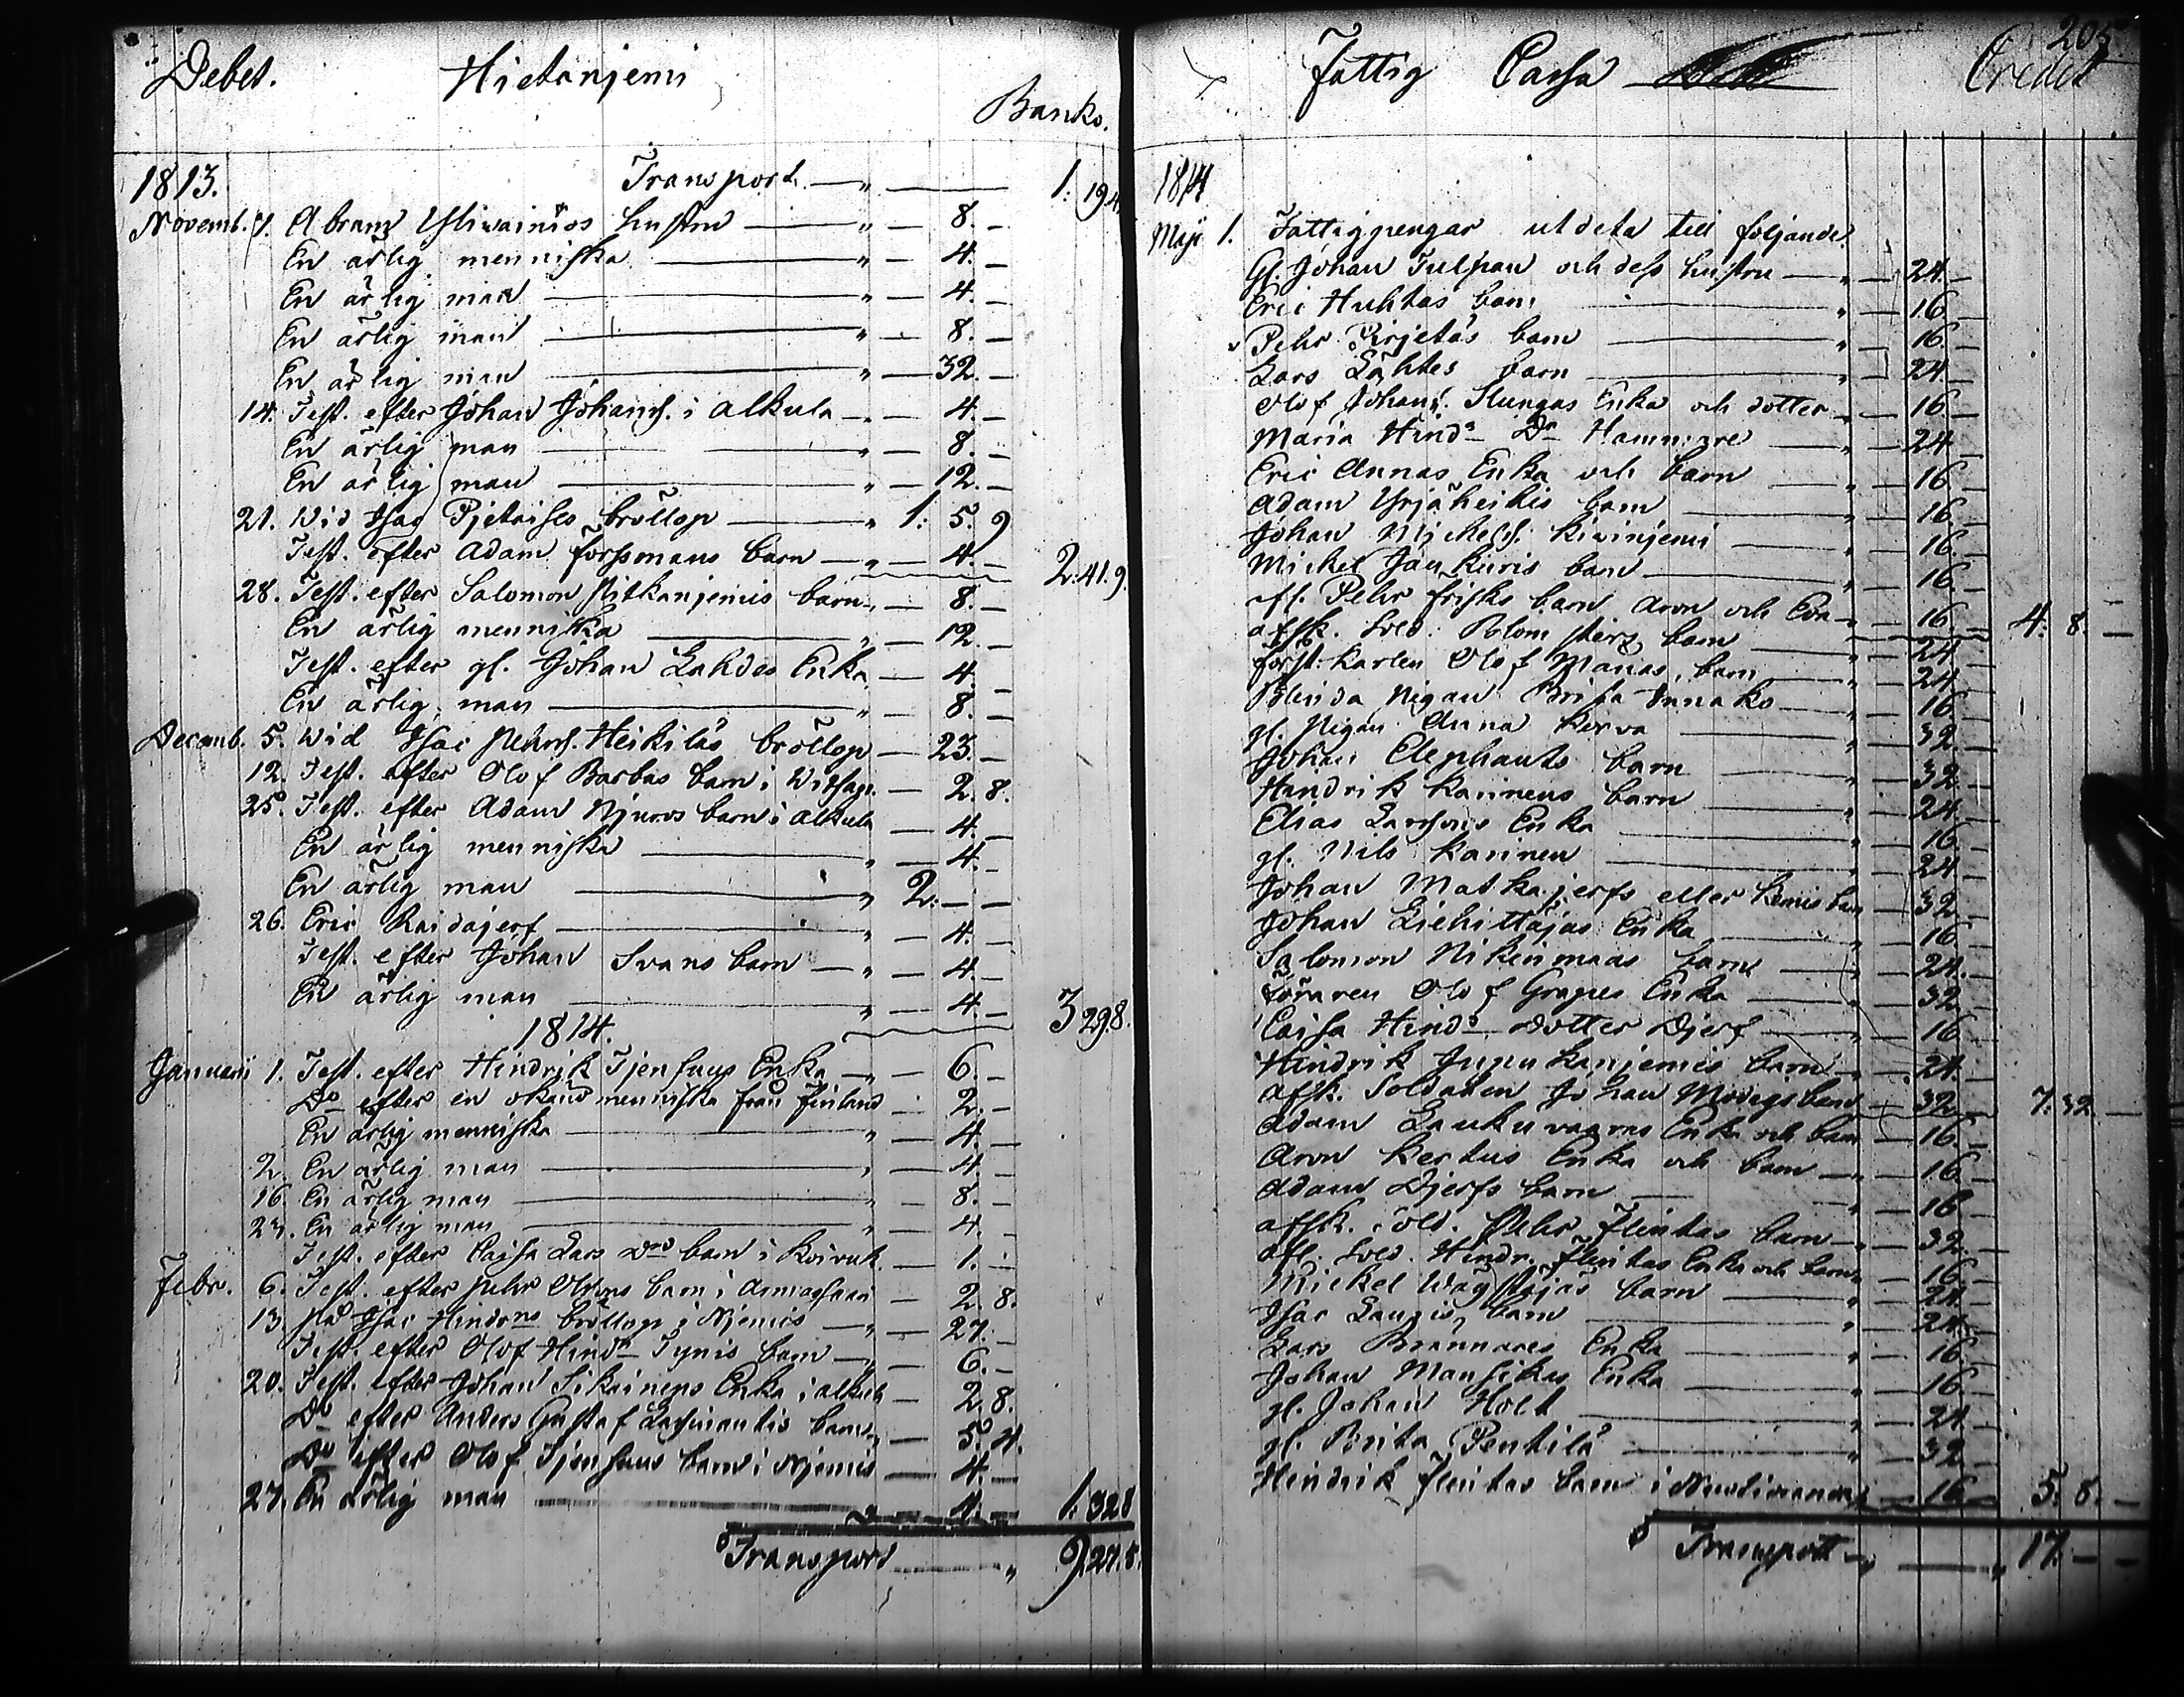 Debet. Hietanjemi
Banko.
1813. Transport. — " — 1: 19 4.
Novemb. 7. Abram Yliwainios hustru — " — 8. —
En ärlig menniska — " — 4. —
En ärlig man — " — 4. —
En ärlig man — " — 8. —
En ärlig man — " — 32. —
14. Test. efter Johan Johans. i Alkula — " — 4. —
En ärlig man — " — 8. —
En ärlig man — " — 12. —
21. Wid Isac Pjetaises bröllop — " 1: 5. 9
Test. efter Adam Forssmans barn — " — 4. — 2: 41. 9.
28. Test. efter Salomon Pitkänjemis barn " — 8. —
En ärlig menniska — " — 12. —
Test. efter gl. Johan Lahdes Enka — 4. —
En ärlig man — " — 8. —
Decemb. 5. Wid Isac Pehrs. Heikiläs bröllop — 23. —
12. Test. efter Olof Barbas barn i Witsan. — 2. 8.
25. Test. efter Adam Njuros barn i Alkula — 4. —
En ärlig menniska — " — 4. —
En ärlig man — " 2: — —
26. Eric Raidajerf — " — 4. —
Test. efter Johan Svans barn — " — 4. —
En ärlig man — " — 4. — 3 29 8.
1814.
Januarii 1. Test. efter Hindrik Tjenhuus Enka — " — 6. —
Do efter en okänd menniska från Finland — 2. —
En ärlig menniska — " — 4. —
2. En ärlig man — " — 4. —
16. En ärlig man — " — 8. —
23. En ärlig man — " — 4. —
Test. efter Cajsa Lars Drs barn i Koivuk. — 1. —
Febr. 6. Test. efter Pehr Olofsons barn i Armassaari — 2. 8.
13. På Isac Hindrns bröllop i Njemis — " — 27. —
Test. efter Olof Hindrn Tynis barn — " — 6. —
20. Test. efter Johan Sikainens Enka i Alkula — 2. 8.
Do efter Anders Gustaf Lassinantis barn " — 5. 4.
Do efter Olof Tjenhuus barn i Njemis — 4. —
27. En ärlig man — " — 4. — 1: 32 8
Transport — " 9. 27. 8.
205
Fattig Cassa Credit
1814
Maji 1. Fattigpengar utdela till följande
Gl. Johan Tulpan och dess hustru — " — 24. —
Eric Huhtas barn — " — 16. —
Pehr Pirjetäs barn — " — 16. —
Lars Lahtes barn — " — 24. —
Olof Johans. Slungas Enka och dotter — " — 16. —
Maria Hindr Dr Hammare — " — 24. —
Eric Annas Enka och barn — " — 16. —
Adam Yrjäheikis barn — " — 16. —
Johan Mickels. Kivinjemi — " — 16. —
Mickel Jaukuris barn — " — 16. —
afl. Pehr Frisks barn Aron och Eva — " — 16. — 4: 8. —
afsk. Sold. Blomsters barn — " — 24. —
Forst-karlen Olof Marias barn — " — 24. —
Blinda Pigan Brita Innako — " — 16. —
gl. Pigan Anna Kerva — " — 32. —
Johan Elephants barn — " — 32. —
Hindrik Karinens barn — " — 24. —
Elias Larssons Enka — " — 16. —
gl. Nils Karinen — " — 24. —
Johan Matkajerfs eller Kemis barn — 32. —
Johan Liehittäjas Enka — " — 16. —
Salomon Nikenmaas barn — " — 24. —
Föraren Olof Grapes Enka — " — 32. —
Cajsa Hindr dotter Djerf — " — 16. —
Hindrik Junukanjemis barn — " — 24. —
afsk. Soldaten Johan Modigs barn — 32. — 7: 32. —
Adam Laukuvaaras Enka och barn — 16. —
Aron Kertus Enka och barn — " — 16. —
Adam Djerfs barn — " — 16. —
afsk. Sold. Pehr Flintas barn — " — 32. —
afl. Sold. Hindr. Flintas Enka och barn " — 16. —
Mickel Wägstäjäs barn — " — 24. —
Isac Lauris barn — " — 24. —
Lars Brännares Enka — " — 16. —
Johan Mansikas Enka — " — 16. —
gl. Johan Holt — " — 24. —
gl. Brita Pentilä — " — 32. —
Hindrik Flintas barn i — 16. — 5. 8. —
Transport — " — " 17: — —